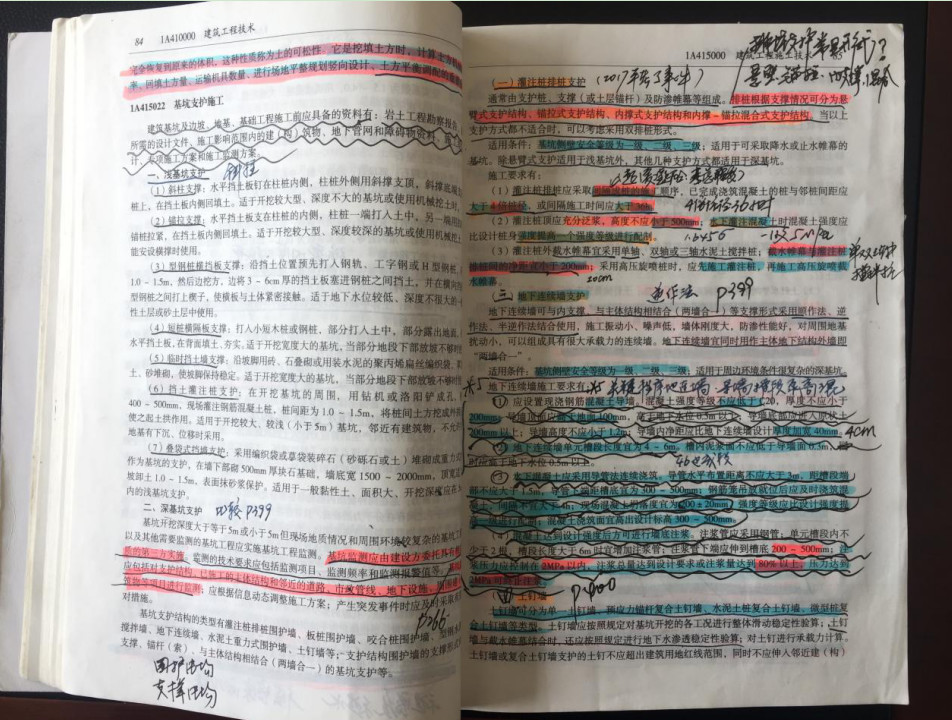 84 1A410000 建筑工程技术
完全恢复到原来的体积，这种性质称为土的可松性。它是挖填土方时，计算土方机
率、回填土方量、运输机具数量、进行场地平整规划竖向设计、土方平衡调配的
1A415022 基坑支护施工
建筑基坑及边坡、地基、基础工程施工前应具备的资料有：岩土工程勘察报告、
所需的设计文件、施工影响范围内的建（构）筑物、地下管网和障碍物资料、
计、专项施工方案和施工监测方案。
一、浅基坑支护
（1）斜柱支撑：水平挡土板钉在柱桩内侧，柱桩外侧用斜撑支顶，斜撑底端
桩上，在挡土板内侧回填土。适于开挖较大型、深度不大的基坑或使用机械挖土时
（2）锚拉支撑：水平挡土板支在柱桩的内侧，柱桩一端打入土中，另一端用
锚桩拉紧，在挡土板内侧回填土。适于开挖较大型、深度较深的基坑或使用机械挖
能安设横撑时使用。
（3）型钢桩横挡板支撑：沿挡土位置预先打入钢轨、工字钢或H型钢桩，
1.0～1.5m，然后边挖方，边将3～6cm厚的挡土板塞进钢桩之间挡土，并在横挡
型钢桩之间打上楔子，使横板与土体紧密接触。适于地下水位较低、深度不很大的一
性土层或砂土层中使用。
（4）短桩横隔板支撑：打入小短木桩或钢桩，部分打入土中，部分露出地面，
水平挡土板，在背面填土、夯实，适于开挖宽度大的基坑，当部分地段下部放坡不够时
（5）临时挡土墙支撑：沿坡脚用砖、石叠砌或用装水泥的聚丙烯扁丝编织袋、
土、砂堆砌，使坡脚保持稳定。适于开挖宽度大的基坑，当部分地段下部放坡不够时
（6）挡土灌注桩支护：在开挖基坑的周围，用钻机或洛阳铲成孔，
400～500mm，现场灌注钢筋混凝土桩，桩间距为1.0～1.5m，将桩间土方挖成外
使之起土拱作用。适用于开挖较大、较浅（小于5m）基坑，邻近有建筑物，不允
地基有下沉、位移时采用。
（7）叠袋式挡墙支护：采用编织袋或草袋装碎石（砂砾石或土）堆砌成重力式
作为基坑的支护，在墙下部砌500mm厚块石基础，墙底宽1500～2000mm，顶宽
坡卸土1.0～1.5m，表面抹砂浆保护。适用于一般黏性土、面积大、开挖深度应在
内的浅基坑支护。
二、深基坑支护 P399
基坑开挖深度大于等于5m或小于5m但现场地质情况和周围环境较复杂的基坑工
以及其他需要监测的基坑工程应实施基坑工程监测。基坑监测应由建设方委托具
质的第三方实施。监测的技术要求应包括监测项目、监测频率和监测报警值等。
应包括对支护结构、已施工的主体结构和邻近的道路、市政管线、地下设施、周围建
筑物等项目进行监测；应根据信息动态调整施工方案；产生突发事件时应及时采取
对措施。
P266
基坑支护结构的类型有灌注桩排桩围护墙、板桩围护墙、咬合桩围护墙、型钢水
搅拌墙、地下连续墙、水泥土重力式围护墙、土钉墙等；支护结构围护墙的支撑形式
支撑、锚杆（索）、与主体结构相结合（两墙合一）的基坑支护等。
围护结构
支撑结构
1A415000 建筑工程施工技术 85
（一）灌注桩排桩支护
通常由支护桩、支撑（或土层锚杆）及防渗帷幕等组成。排桩根据支撑情况可分为悬
臂式支护结构、锚拉式支护结构、内撑式支护结构和内撑-锚拉混合式支护结构。当以上
支护方式都不适合时，可以考虑采用双排桩形式。
适用条件：基坑侧壁安全等级为一级、二级、三级；适用于可采取降水或止水帷幕的
基坑。除悬臂式支护适用于浅基坑外，其他几种支护方式都适用于深基坑。
施工要求有：
（1）灌注桩排桩应采取间隔成桩的施工顺序，已完成浇筑混凝土的桩与邻桩间距应
大于4倍桩径，或间隔施工时间应大于36h。
（2）灌注桩顶应充分泛浆，高度不应小于500mm；地下灌注混凝土时混凝土强度应
比设计桩身强度提高一个强度等级进行配制。
（3）灌注桩外截水帷幕宜采用单轴、双轴或三轴水泥土搅拌桩；截水帷幕与灌注桩
排桩间的净距宜小于200mm；采用高压旋喷桩时，应先施工灌注桩，再施工高压旋喷截
水帷幕。
20cm
（三）地下连续墙支护 逆作法 P399
地下连续墙可与内支撑、与主体结构相结合（两墙合一）等支撑形式采用顺作法、逆
作法、半逆作法结合使用，施工振动小、噪声低，墙体刚度大，防渗性能好，对周围地基
扰动小，可以组成具有很大承载力的连续墙。地下连续墙宜同时用作主体地下结构外墙即
“两墙合一”。
适用条件：基坑侧壁安全等级为一级、二级、三级；适用于周边环境条件很复杂的深基坑。
地下连续墙施工要求有：
① 应设置现浇钢筋混凝土导墙。混凝土强度等级不应低于C20，厚度不应小于
200mm；导墙顶面应高于地面100mm，高于地下水位0.5m以上；导墙底部应进入原状土
200mm以上；导墙高度不应小于1.2m；导墙内净距应比地下连续墙设计厚度加宽40mm。 4cm
② 地下连续墙单元槽段长度宜为4～6m。槽内泥浆面不应低于导墙面0.3m，
时应高于地下水位0.5m以上。
③ 水下混凝土应采用导管法连续浇筑。导管水平布置距离不应大于3m，距槽段端
部不应大于1.5m，导管下端距槽底宜为300～500mm；钢筋笼吊放就位后应及时浇筑混
凝土，间隔不宜大于4h；现场混凝土坍落度宜为200±20mm，强度等级应比设计强度提
高一级进行配制；混凝土浇筑面宜高出设计标高300～500mm。
④ 混凝土达到设计强度后方可进行墙底注浆。注浆管应采用钢管；单元槽段内不
少于2根，槽段长度大于6m时宜增加注浆管；注浆管下端应伸到槽底200～500mm；注
浆压力应控制在2MPa以内，注浆总量达到设计要求或注浆量达到80%以上，压力达到
2MPa可终止注浆。
土钉墙 P400
土钉墙可分为单一土钉墙、预应力锚杆复合土钉墙、水泥土桩复合土钉墙、微型桩复
合土钉墙等类型。土钉墙应按照规定对基坑开挖的各工况进行整体滑动稳定性验算；土钉
墙与截水帷幕结合时，还应按照规定进行地下水渗透稳定性验算；对土钉进行承载力计算。
土钉墙或复合土钉墙支护的土钉不应超出建筑用地红线范围，同时不应伸入邻近建（构）